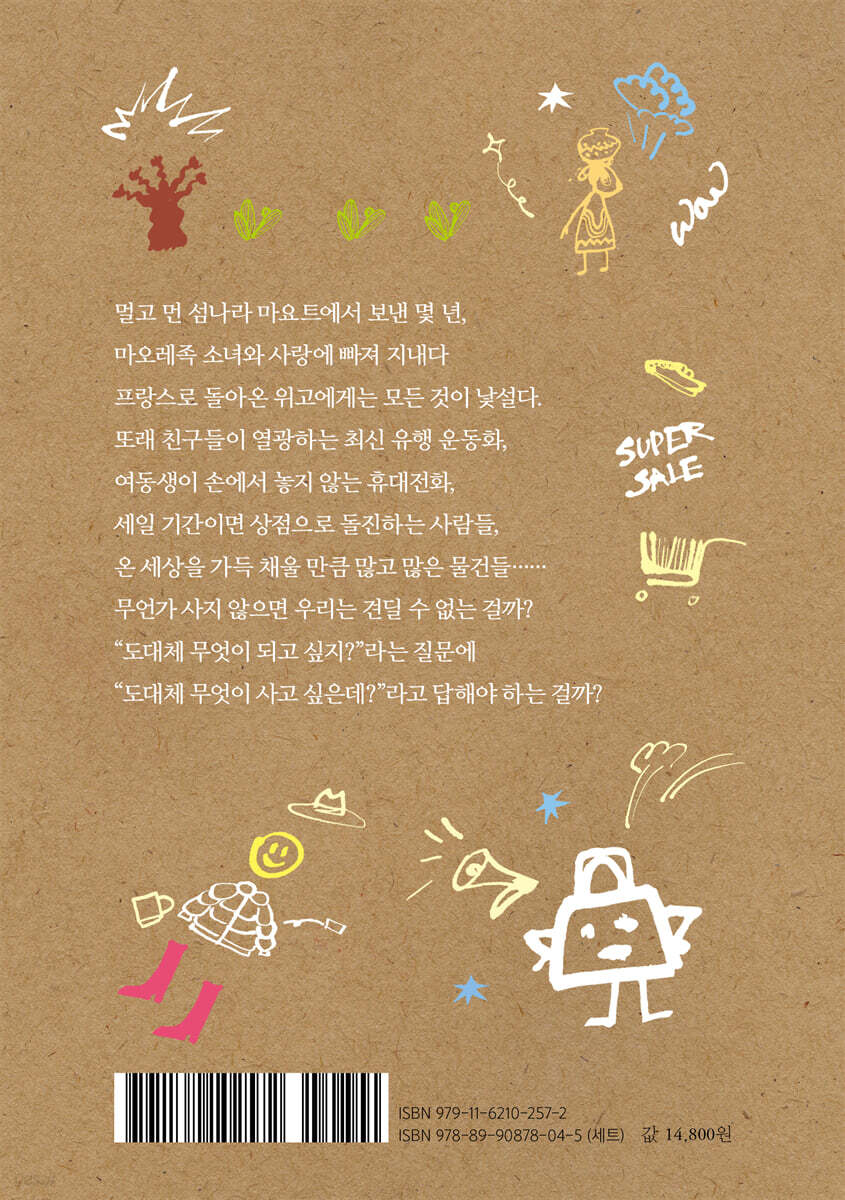 wow
멀고 먼 섬나라 마요트에서 보낸 몇 년,
마오레족 소녀와 사랑에 빠져 지내다
프랑스로 돌아온 위고에게는 모든 것이 낯설다.
또래 친구들이 열광하는 최신 유행 운동화,
여동생이 손에서 놓지 않는 휴대전화,
세일 기간이면 상점으로 돌진하는 사람들,
온 세상을 가득 채울 만큼 많고 많은 물건들……
무언가 사지 않으면 우리는 견딜 수 없는 걸까?
“도대체 무엇이 되고 싶지?”라는 질문에
“도대체 무엇이 사고 싶은데?”라고 답해야 하는 걸까?
SUPER
SALE
ISBN 979-11-6210-257-2
ISBN 978-89-90878-04-5 (세트) 값 14,800원